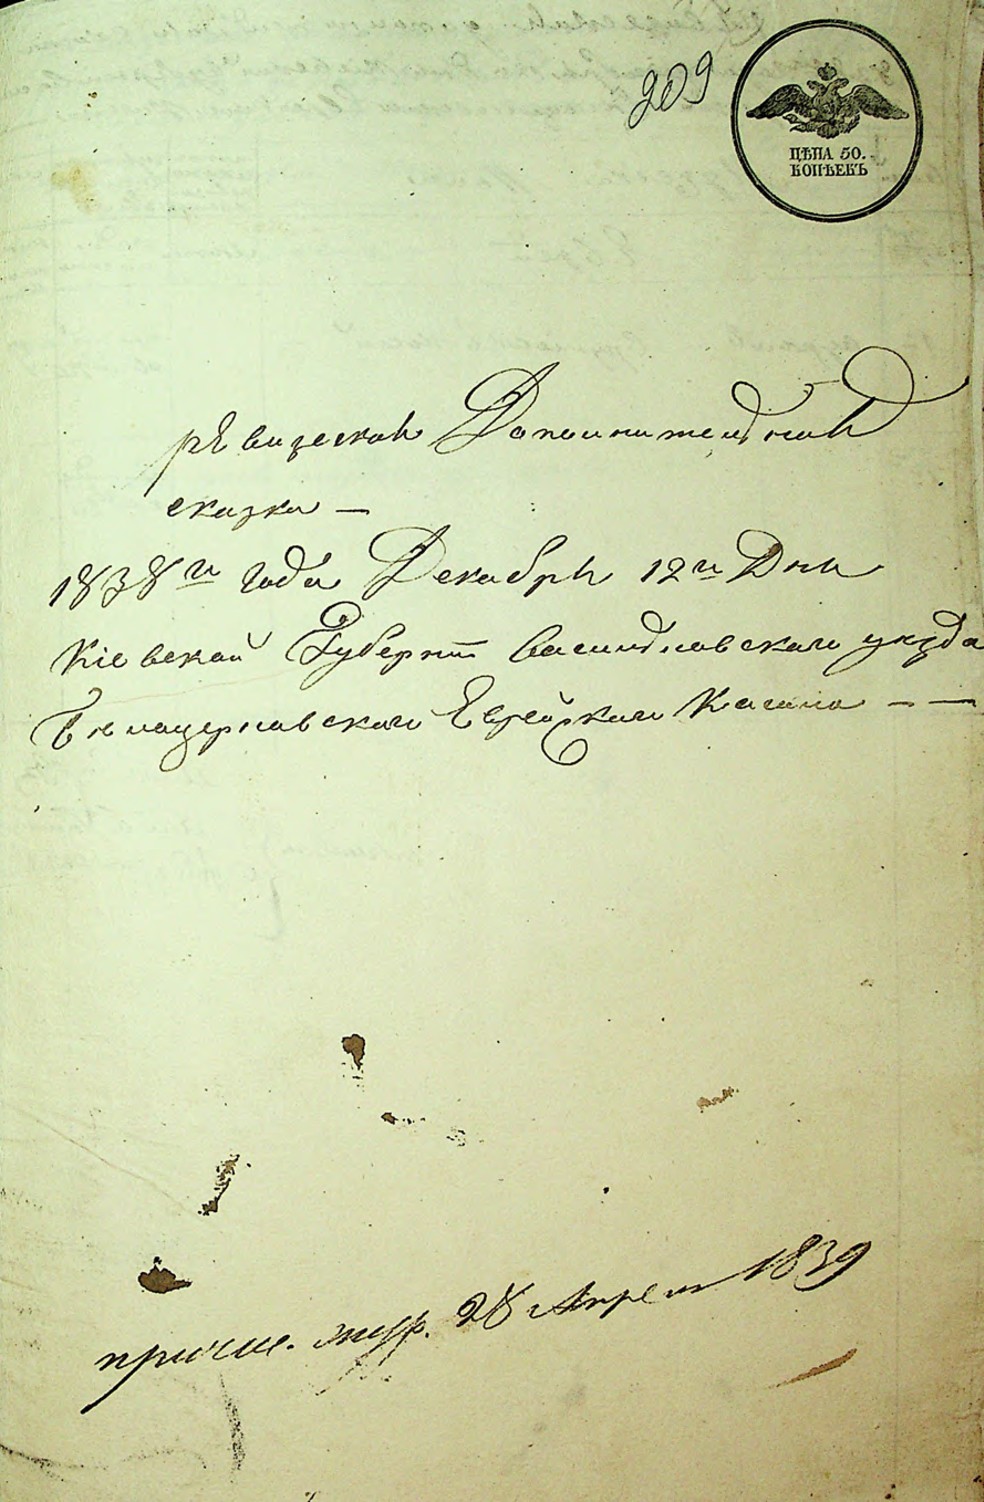 209
ЦѢНА 50.
КОПѢЕКЪ
ревизская Дополнительная
сказка —
1838го года Декабря 12го Дня
Кіевской Губерніи Василковского уезда
Белоцерковского Еврейского Кагала — —
причис. жур. 28 Апреля 1839